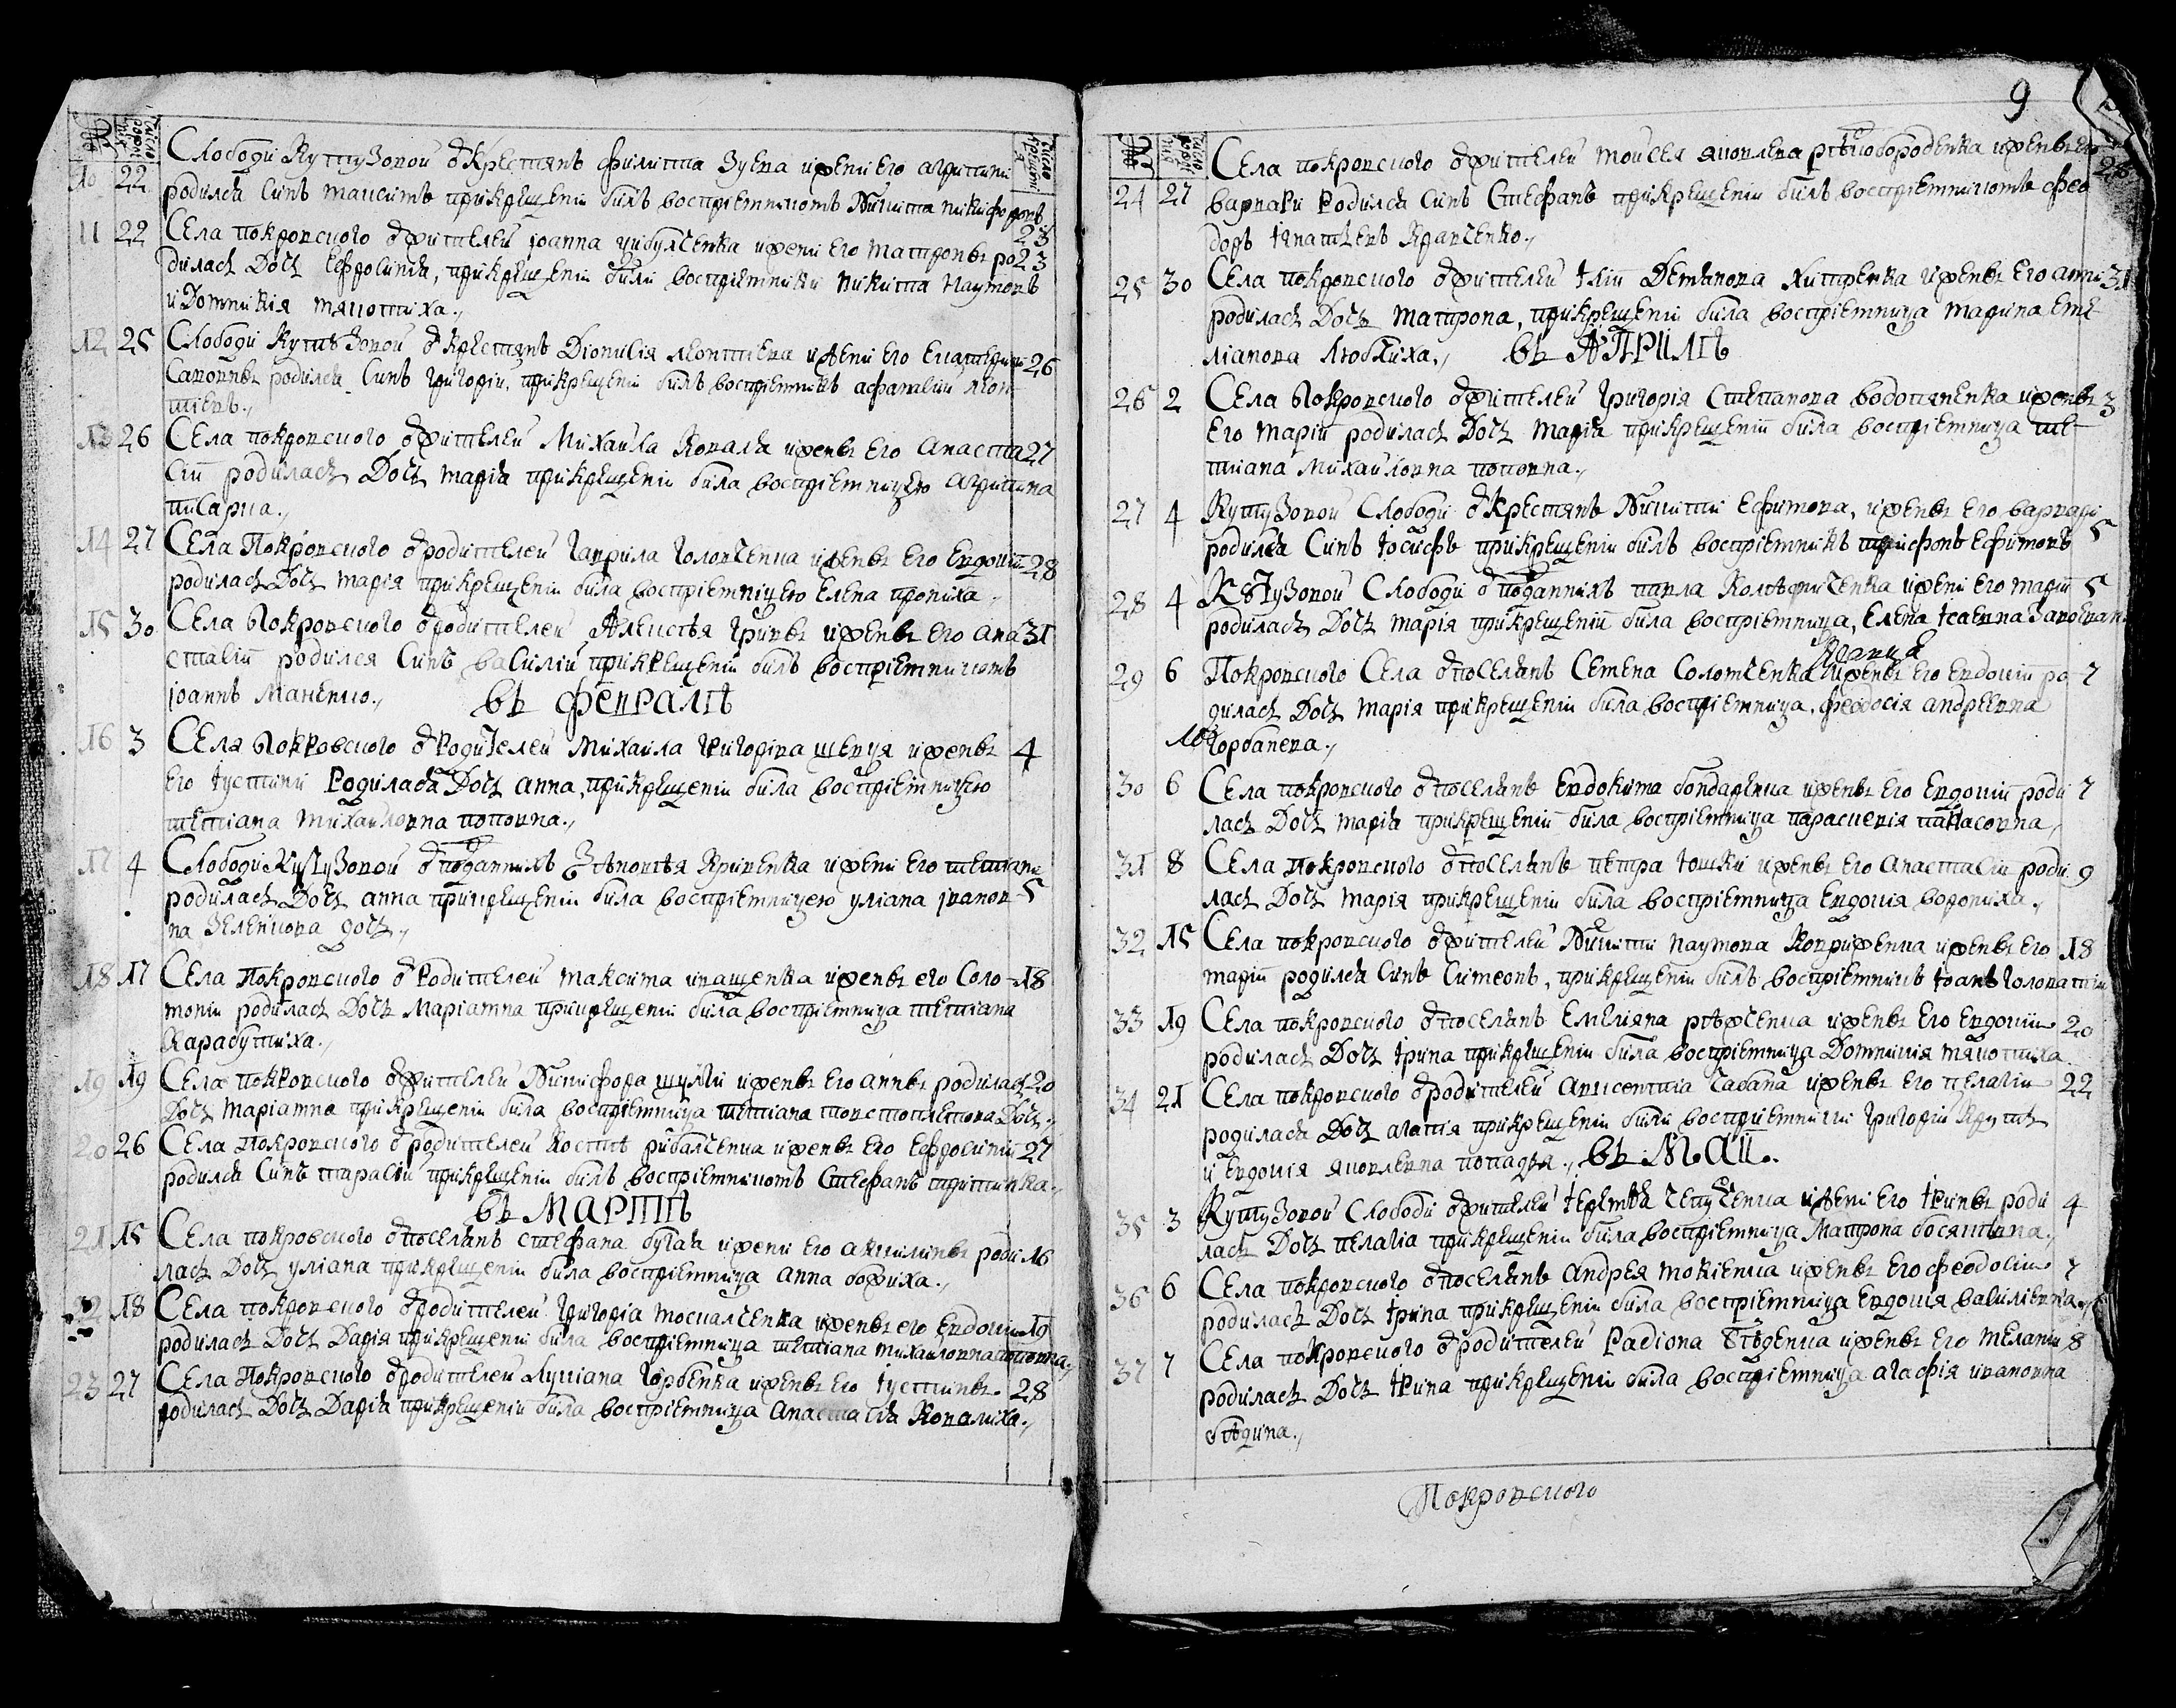 Слободи Кутузовой ѿ Крестянъ филиппа Зуева ижени Его агрипини
10 22 родился Синъ максимъ прикрещеніи билъ воспріемникомъ Никита никифоровъ 23
11 22 Села покровского ѿ жителей іоанна цибулченка ижени Его матронъ ро 23
дилась Дочь Ефросинія, прикрещеніи били воспріемники никита наумовъ
и Домникія
12 25 Слободи Кутузовой ѿ крестянъ Діонисія леонтиева ижени Его Екатерини 26
родился Синъ григорій, прикрещеніи билъ воспріемникъ афанасій леон
тіевъ
13 26 Села покровского ѿ жителей Михайла Коваля иженъ Его анаста 27
сіи родилась Дочь марія прикрещеніи била воспріемницею агрипина
писарка
14 27 Села Покровского ѿ родителей гаврила головченка иженъ Его Евдокіи 28
родилась Дочь марія прикрещеніи била воспріемницею Елена
15 30 Села Покровского ѿ родителей Алексѣя иженъ Его ана 31
стасіи родился Синъ василій прикрещеніи билъ воспріемникомъ
іоаннъ
въ февралѣ
16 3 Села Покровского ѿ родителей Михаила григоріва шевця иженъ 4
Его іустини Родилася Дочь анна, прикрещеніи била воспріемницею
тетіана михаиловна поповна
17 4 Слободи Кутузовой ѿ подданнихъ Зѣновѣя Кривенка ижени Его тетіани
родилась Дочь анна прикрещеніи била воспріемницею уліана іванов 5
на Зеленкова дочь
18 17 Села Покровского ѿ Родителей максима иващенка иженъ его Соло 18
моніи родилась Дочь Маріамна прикрещеніи била воспріемница тетіана
Карабутиха
19 19 Села покровского ѿ жителей Никифора шулги иженъ Его аннъ родилась 20
Дочь маріамна прикрещеніи била воспріемница тетіана Дочь
20 26 Села покровского ѿ родителей Костѣ рибалченка иженъ Его Ефросиніи 27
родился Синъ тарасій прикрещеніи билъ воспріемникомъ Стефанъ
въ МАРТѢ
21 15 Села покровского ѿ поселянъ стефана бугая ижени Его акилинъ роди 16
лась Дочь уліана прикрещеніи била воспріемница анна
22 18 Села покровского ѿ родителей григорія москалченка иженъ его Евдокіи 19
родилась Дочь Дарія прикрещеніи била воспріемница тетіана михаиловна поповна
23 27 Села Покровского ѿ родителей Лукіана горбенка иженъ Его іустинъ 28
родилась Дочь Дарія прикрещеніи била воспріемница анастасія Ковалиха
9
Села покровского ѿ жителей мойсея яковлева рѣбобороденка иженъ Его 28
24 27 варвари Родился Синъ Стефанъ прикрещеніи билъ воспріемникомъ фео
доръ ігнатіевъ Кравченко
25 30 Села покровского ѿ жителей іліи Демянова хитренка иженъ Его анни 31
родилась Дочь матрона, прикрещеніи била воспріемница марина Еме
ліанова
въ АПРИЛѢ
26 2 Села Покровского ѿ жителей григорія степанова водопяненка иженъ 3
Его маріи родилась Дочь марія прикрещеніи била воспріемница те
тіана михаиловна поповна
27 4 Кутузовой Слободи ѿ крестянъ Никити Ефимова, иженъ Его варвари
родился Синъ іосифъ прикрещеніи билъ воспріемникъ трифонъ Ефимовъ 5
28 4 Кутузовой Слободи ѿ подданнихъ павла ижени Его маріи 5
родилась Дочь марія прикрещеніи била воспріемница, Елена
29 6 Покровского Села ѿ поселянъ Семена Соломченка иженъ Его Евдокіи ро 7
дилась Дочь марія прикрещеніи била воспріемница, феодосія андреевна
горбанева
30 6 Села покровского ѿ поселянъ Евдокима бондаренка иженъ Его Евдокіи роди 7
лась Дочь марія прикрещеніи била воспріемница параскевія панасовна
31 8 Села покровского ѿ поселянъ петра иженъ Его анастасіи роди 9
лась Дочь марія прикрещеніи била воспріемница Евдокія ворониха
32 15 Села покровского ѿ жителей Никити наумова иженъ Его 18
маріи родился Синъ Симеонъ, прикрещеніи билъ воспріемникъ іоанъ
33 19 Села покровского ѿ поселянъ Емеляна иженъ Его Евдокіи 20
родилась Дочь ірина прикрещеніи била воспріемница Домникія
34 21 Села покровского ѿ родителей авксентіа чабана иженъ Его пелагіи 22
родилася Дочь агапія прикрещеніи били воспріемники григорій
и Евдокія яковлевна попадя
въ МАИ
35 3 Кутузовой Слободи ѿ жителей іереміи ижени Его іринъ роди 4
лась Дочь пелагіа прикрещеніи била воспріемница Матрона
36 6 Села покровского ѿ поселянъ андрея мокіенка иженъ Его феодосіи 7
родилась Дочь ірина прикрещеніи била воспріемница Евдокія василіевна
37 7 Села покровского ѿ родителей Радіона бѣденка иженъ Его меланіи 8
родилась Дочь ірина прикрещеніи била воспріемница агафія ивановна
бѣдина
Покровского